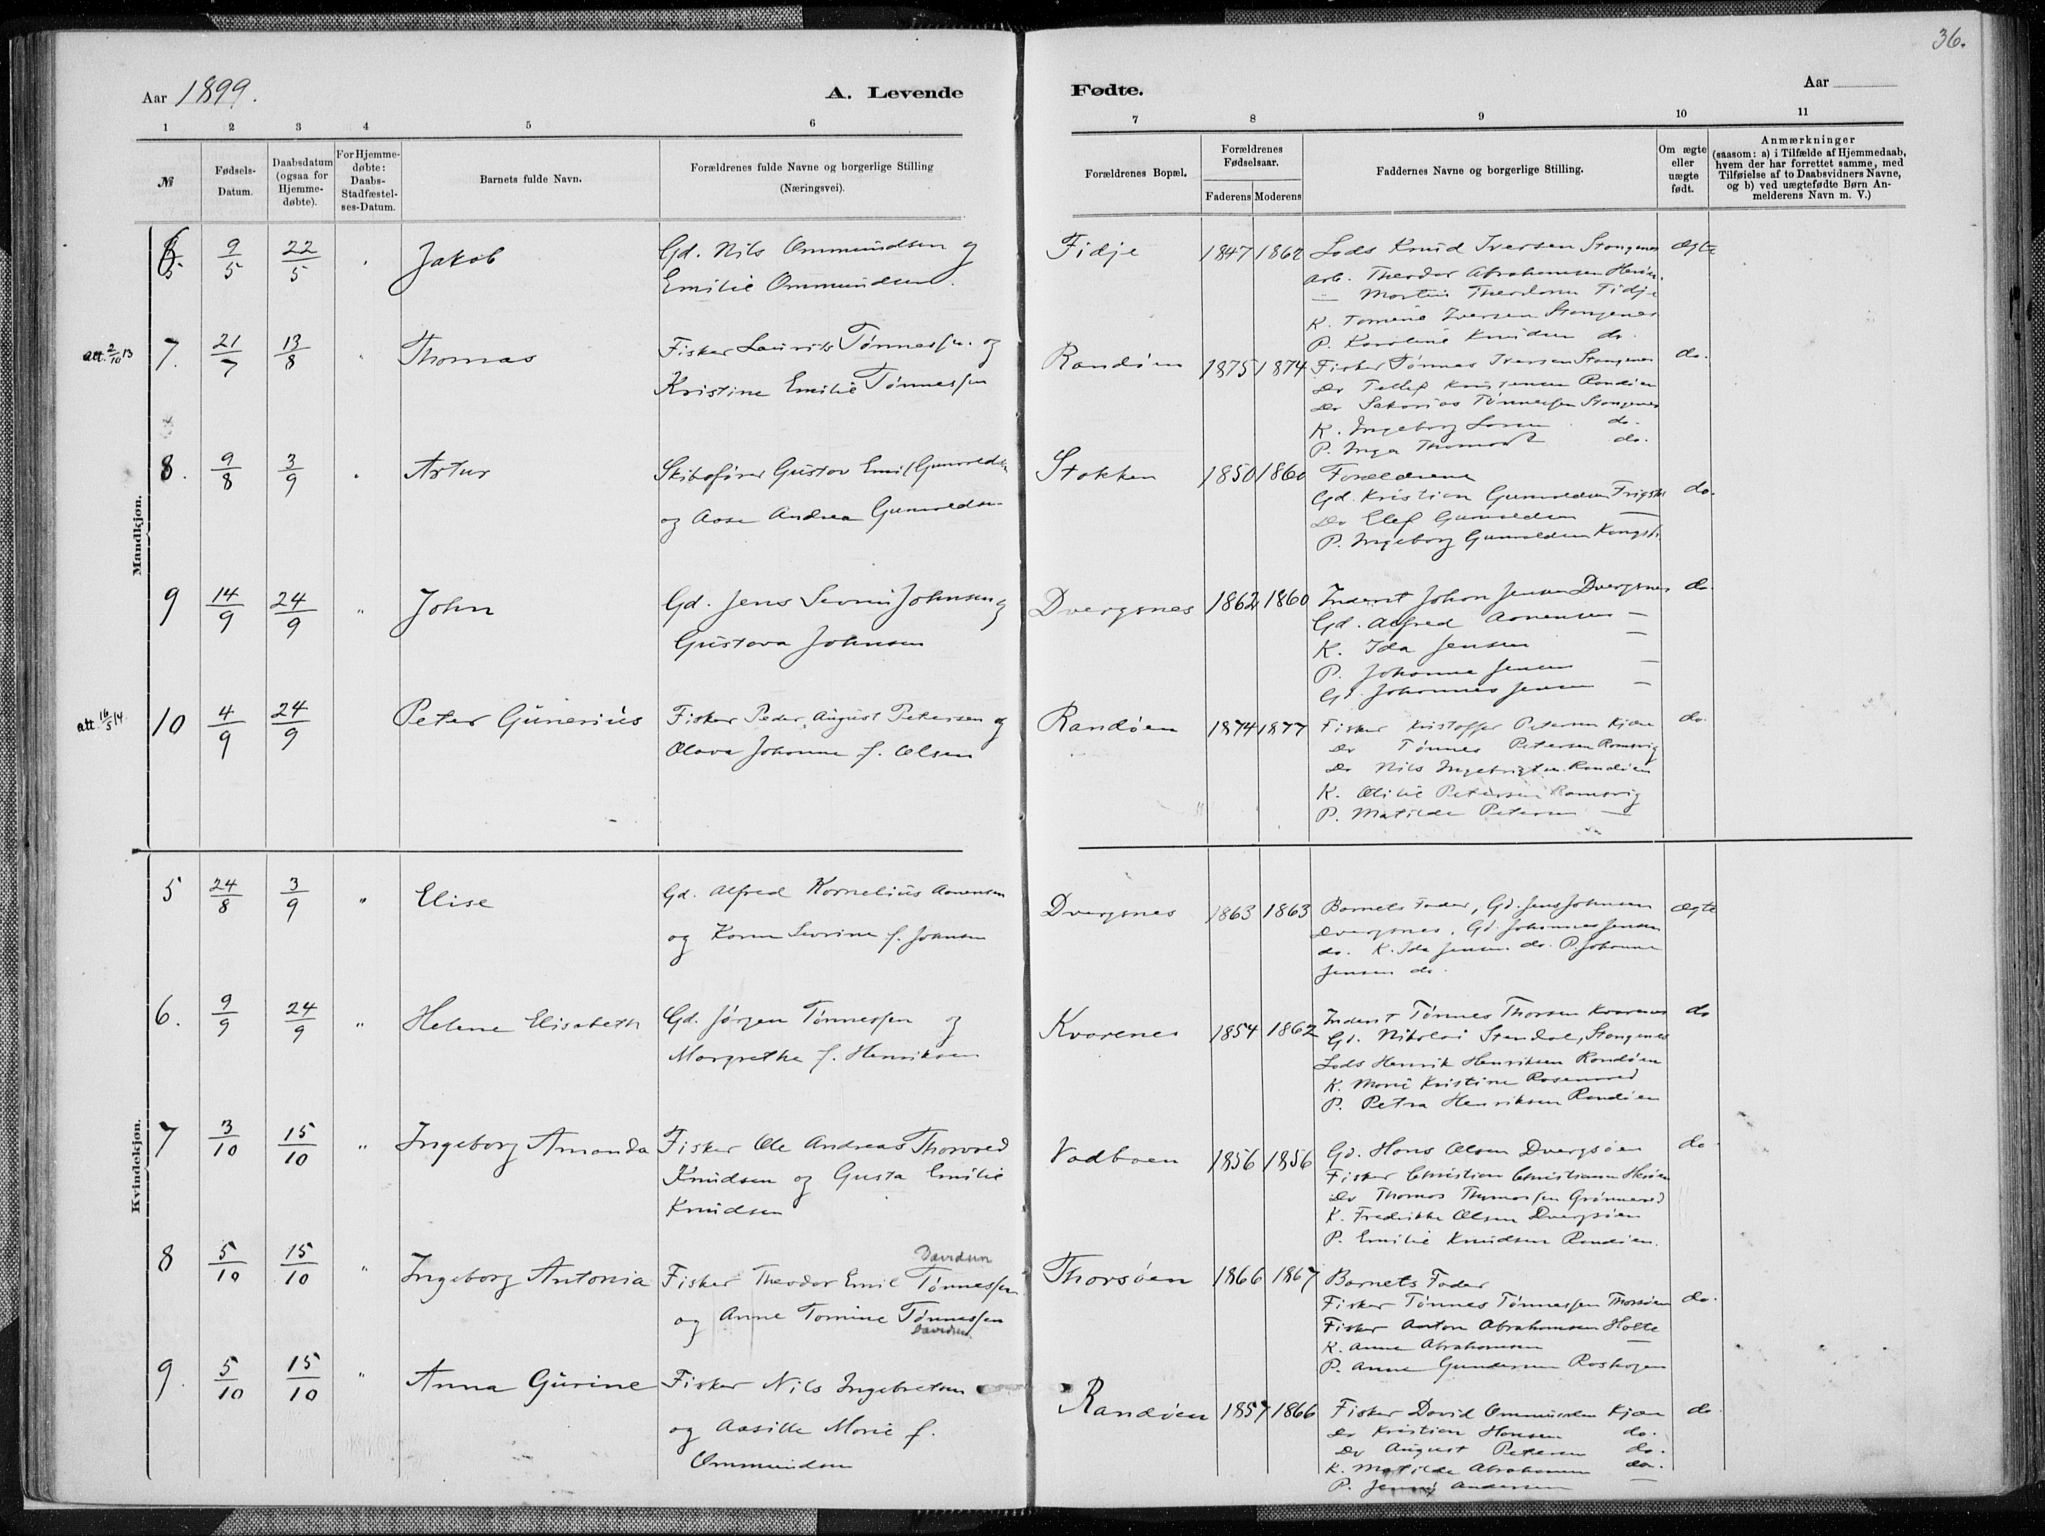 36.
Aar 1899.
A. Levende
Fødte.
Aar
1 2 3 4 5 6 7 8 9 10 11
№
Fødsels-
Datum.
Daabsdatum
(ogsaa for
Hjemme-
døbte).
For Hjemme-
døbte:
Daabs-
Stadfæstel-
ses-Datum.
Barnets fulde Navn.
Forældrenes fulde Navne og borgerlige Stilling
(Næringsvei).
Forældrenes Bopæl.
Forældrenes
Fødselsaar.
Faderens Moderens
Faddernes Navne og borgerlige Stilling.
Om ægte
eller
uægte
født.
Anmærkninger
(saasom: a) i Tilfælde af Hjemmedaab,
hvem der har forrettet samme, med
Tilføielse af to Daabsvidners Navne,
og b) ved uægtefødte Børn An-
melderens Navn m. V.)
Mandkjøn.
6 9/5 22/5 Jakob
Gd. Nils Ommundsen og
Emilie Ommundsen.
Fidje 1847 1862
Lods Knud Iversen Stangenes ægte
Arb. Theodor Abrahamsen
— Martin Fidje
K. Tomine Iversen Stangenes
P. Karoline Knudsen do.
att. 2/10 13
7. 21/7 13/8 " Thomas
Fisker Laurits Tønnessen og
Kristine Emilie Tønnessen
Randøen 1875 1874
Fisker Tønnes Iversen Stangenes do.
Do Tellef Randøen
Do Sakarias Tønnessen Stangenes
K. Ingeborg do.
P. Inga do.
8. 9/8 3/9 Artur
Skibsfører Gustav Emil Gunvaldsen
og Aase Andrea Gunvaldsen
Stokken 1850 1860
Forældrene
Gd. Kristian Gunvaldsen do.
Do Elef Gunvaldsen —
P. Ingeborg Gunvaldsen
9 14/9 24/9 " John
Gd. Jens Severin Johnsen og
Gustava Johnsen
Dvergsnes 1862 1860
Inderst Johan Jensen Dvergsnes do
Gd. Alfred Aanensen —
K. Ida Jensen —
P. Johanna Jensen —
Gd. Johannes Jensen —
att. 16/5 14.
10 4/9 24/9 Peter Gunerius
Fisker Peder August Petersen og
Olava Johanne f. Olsen
Randøen 1874 1877
Fisker Kristoffer Petersen Kjær do.
Do Tønnes Petersen Ramsvig
Do Nils Ingebrigtsn. Randøen
K. Petersen Ramsvig
P. Matilde Petersen —
Kvindekjøn.
5 24/8 3/9 " Elise
Gd. Alfred Kornelius Aanensen
og Karen Severine f. Johnsen
Dvergsnes 1863 1863
Barnets Fader, Gd. Jens Johnsen ægte
Dvergsnes, Gd. Johannes Jensen
do. K. Ida Jensen do. P. Johanna
Jensen do.
6. 9/9 24/9 " Helene Elisabeth
Gd. Jørgen Tønnessen og
Margrethe f. Henriksen
Kvarenes 1854 1862
Inderst Tønnes Thorsen Kvarenes do
Gd. Nikolai Stendal, Stangenes
Lods Henrik Henriksen Randøen
K. Marie Kristine
P. Petra Henriksen Randøen
7 3/10 15/10 " Ingeborg Amanda
Fisker Ole Andreas Thorvald
Knudsen og Gusta Emilie
Knudsen
Vadboen 1856 1856
Gd. Hans Olsen Dvergsøen do
Fisker Christian Christiansen
Do Thomas Thomassen
K. Fredrikke Olsen Dvergsøen
P. Emilie Knudsen Randøen.
8 5/10 15/10 " Ingeborg Antonia
Davidsen
Fisker Theodor Emil Tønnessen
og Anne Tomine Tønnessen
Davidsen
Thorsøen 1866 1867
Barnets Fader
Fisker Tønnes Tønnessen Thorsøen do.
Fisker Anton Abrahamsen Holte
K. Anne Abrahamsen —
P. Anne Gundersen
9. 5/10 15/10 " Anna Gurine
Fisker Nils Ingebretsen
og Aasille Marie f.
Ommundsen
Randøen 1857 1866
Fisker David Ommundsen Kjær do
Do Kristian Hansen do.
Do August Petersen do.
K. Matilde Abrahamsen do.
P. Andersen —